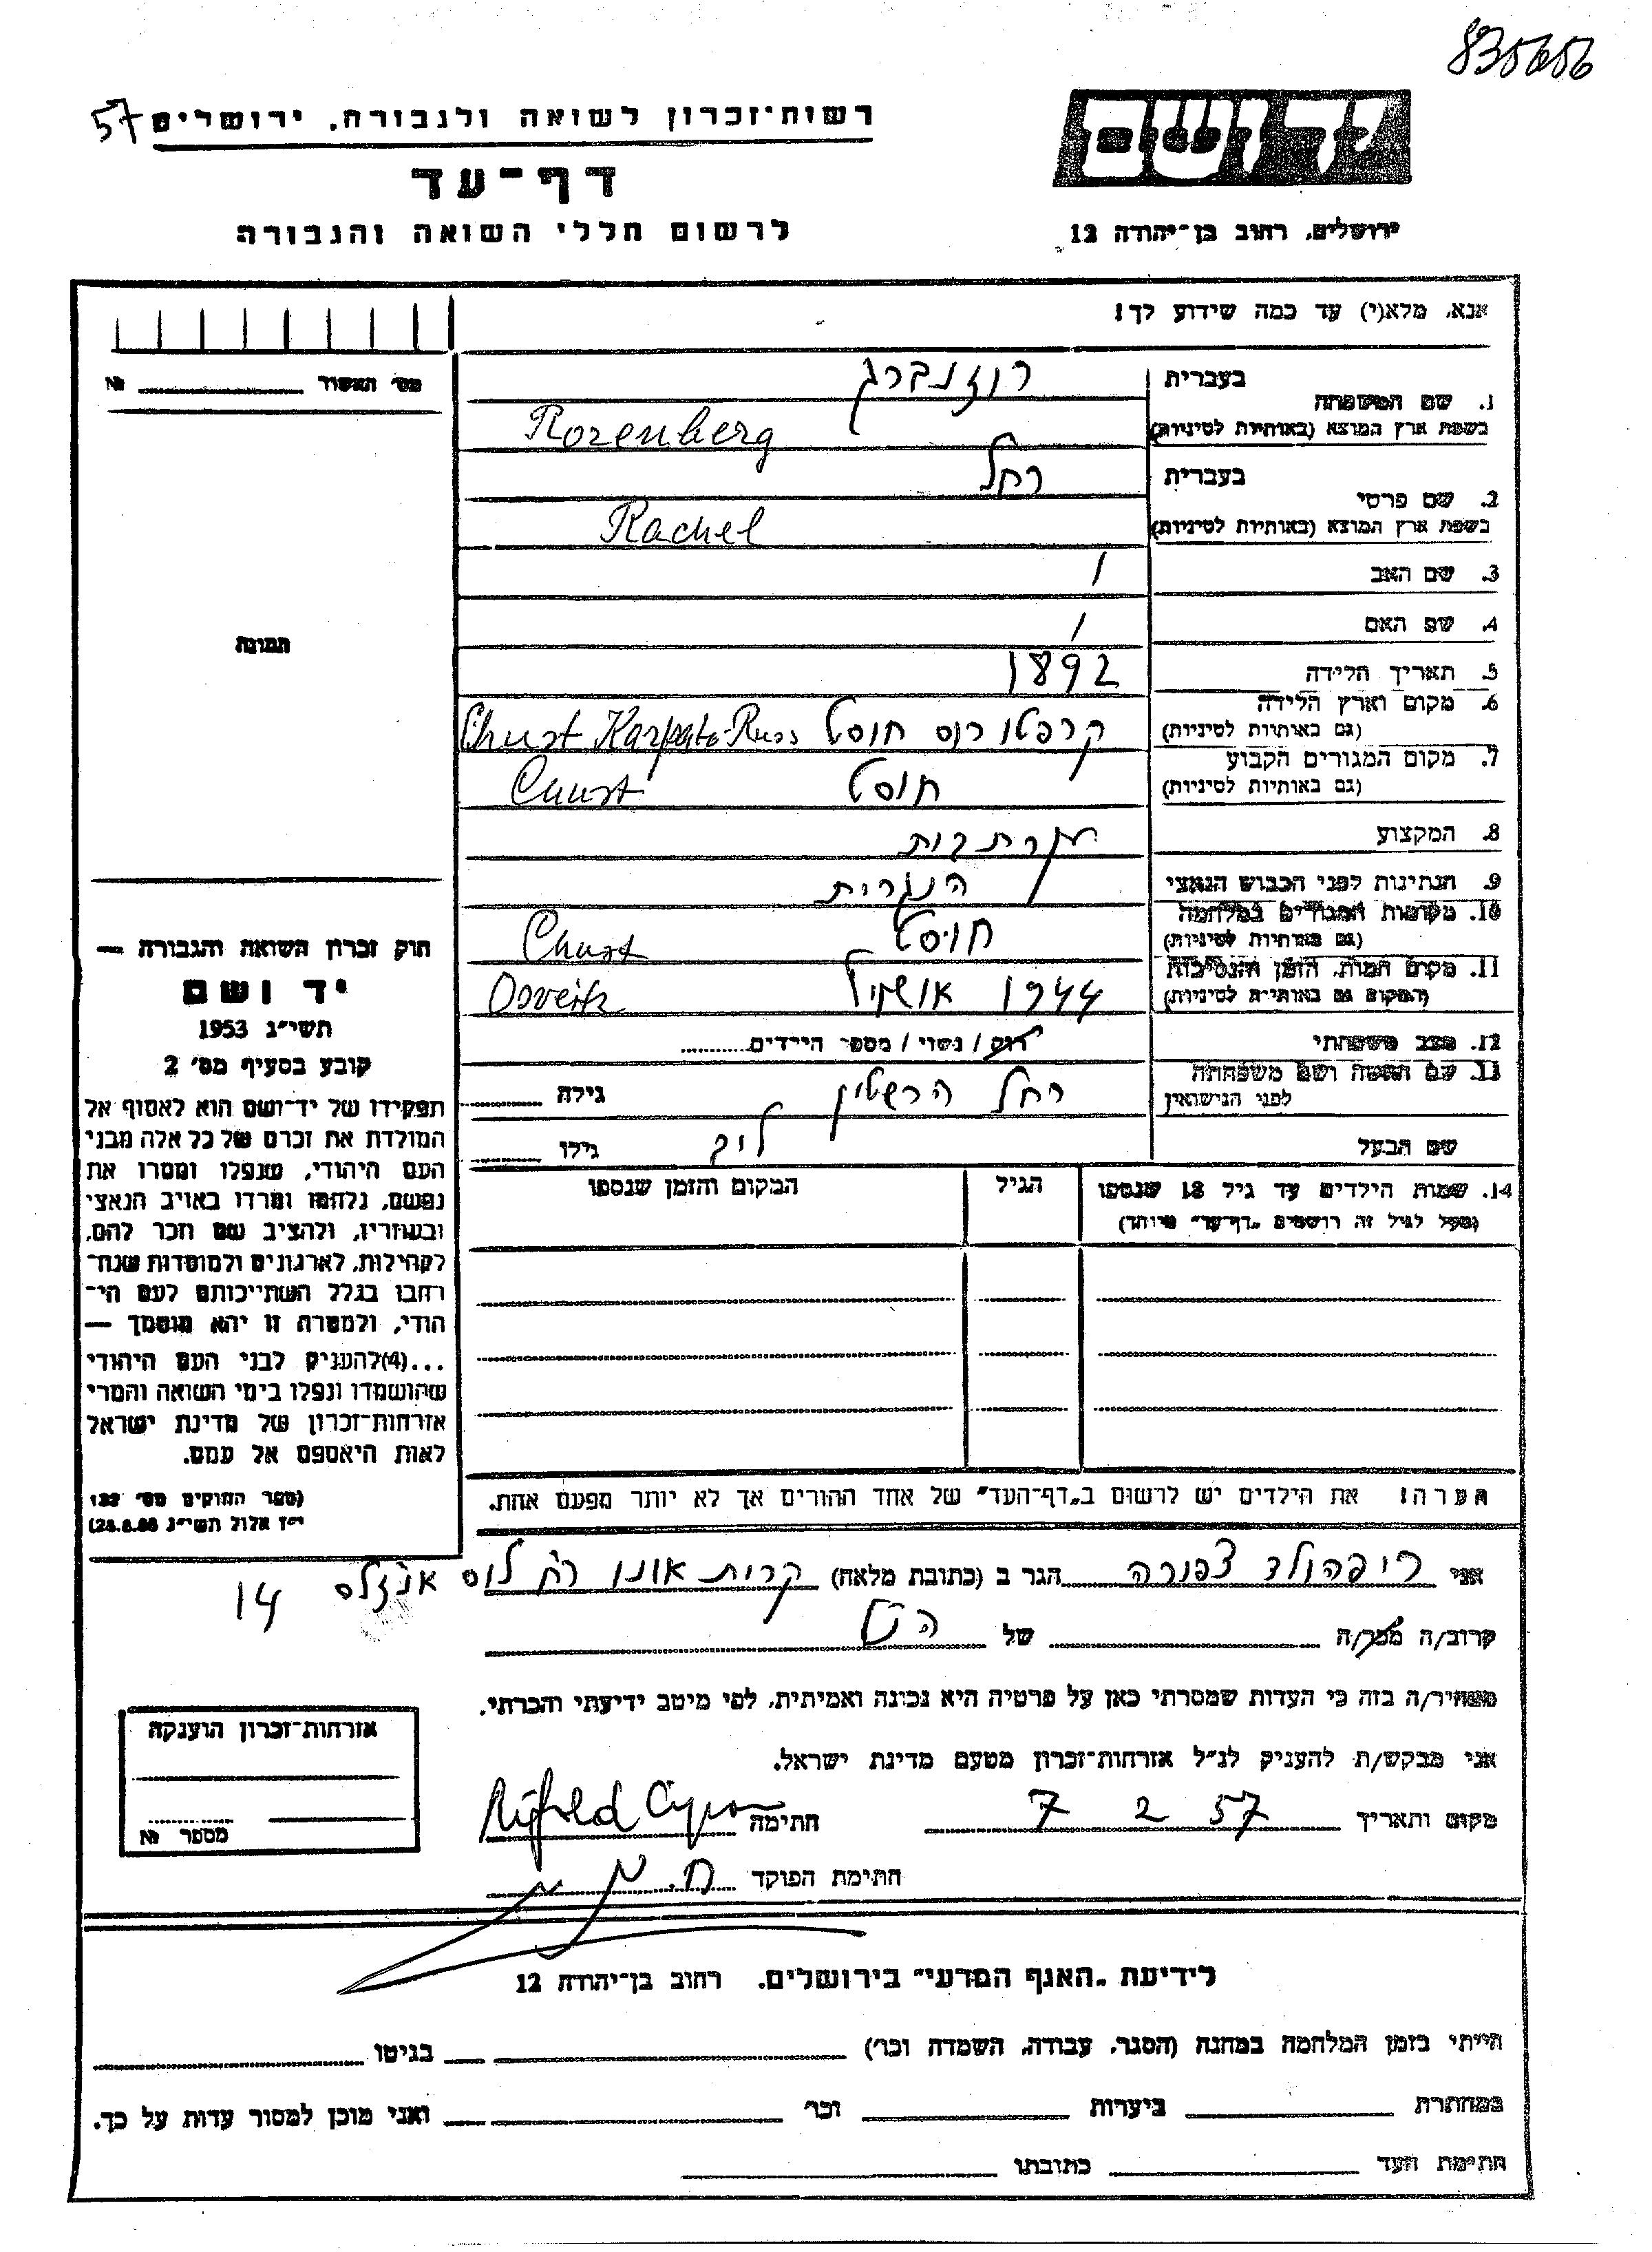 835656
רשות־זכרון לשואה ולגבורה, ירושלים 57
יד ושם
דף־עד
לרשום חללי השואה והגבורה
ירושלים, רחוב בן־יהודה 12
אנא, מלא(י) עד כמה שידוע לך!
מס׳ האשור №
1. שם המשפחה
בעברית רוזנברג
בשפת ארץ המוצא (באותיות לטיניות) Rozenberg
2. שם פרטי
בעברית רחל
בשפת ארץ המוצא (באותיות לטיניות) Rachel
3. שם האב /
4. שם האם /
5. תאריך הלידה 1892
6. מקום וארץ הלידה
(גם באותיות לטיניות) קרפטו רוס חוסט Chust Karpato-Russ
7. מקום המגורים הקבוע
(גם באותיות לטיניות) חוסט Chust
8. המקצוע עקרת בית
9. הנתינות לפני הכבוש הנאצי הנגרית
10. מקומות המגורים במלחמה
(גם באותיות לטיניות) חוסט Chust
11. מקום המות, הזמן והנסיבות
(המקום גם באותיות לטיניות) 1944 Osveitz
12. מצב משפחתי רוק / נשוי / מספר הילדים
13. שם האשה ושם משפחתה
לפני הנישואין רחל הרשטין גילה
שם הבעל ליב גילו
14. שמות הילדים עד גיל 18 שנספו הגיל המקום והזמן שנספו
(מעל לגיל זה רושמים „דף־עד” מיוחד)
הערה! את הילדים יש לרשום ב„דף־העד” של אחד ההורים אך לא יותר מפעם אחת.
תמונה
חוק זכרון השואה והגבורה —
יד ושם
תשי״ג 1953
קובע בסעיף מס׳ 2
תפקידו של יד־ושם הוא לאסוף אל
המולדת את זכרם של כל אלה מבני
העם היהודי, שנפלו ומסרו את
נפשם, נלחמו ומרדו באויב הנאצי
ובעוזריו, ולהציב שם וזכר להם,
לקהילות, לארגונים ולמוסדות שנח־
רחבו בגלל השתייכותם לעם הי־
הודי, ולמטרה זו יהא מוסמך —
...(4)להעניק לבני העם היהודי
שהושמדו ונפלו בימי השואה והמרי
אזרחות־זכרון של מדינת ישראל
לאות היאספם אל עמם.
(ספר החוקים מס׳ 132
י״ז אלול תשי״ג
אני ריפהולד צפורה הגר ב (כתובת מלאה) קרית אונו רח׳ לוס אנג׳לס 14
קרוב/ה מכר/ה של
מצהיר/ה בזה כי העדות שמסרתי כאן על פרטיה היא נכונה ואמיתית, לפי מיטב ידיעתי והכרתי.
אני מבקש/ת להעניק לנ״ל אזרחות־זכרון מטעם מדינת ישראל.
מקום ותאריך 7 2 57 חתימה
חתימת הפוקד
אזרחות־זכרון הוענקה
מספר №
לידיעת „האגף המדעי” בירושלים. רחוב בן־יהודה 12
הייתי בזמן המלחמה במחנה (הסגר, עבודה, השמדה וכר׳) בגיטו
במחתרת ביערות וכר׳ ואני מוכן למסור עדות על כך.
חתימת העד כתובתו